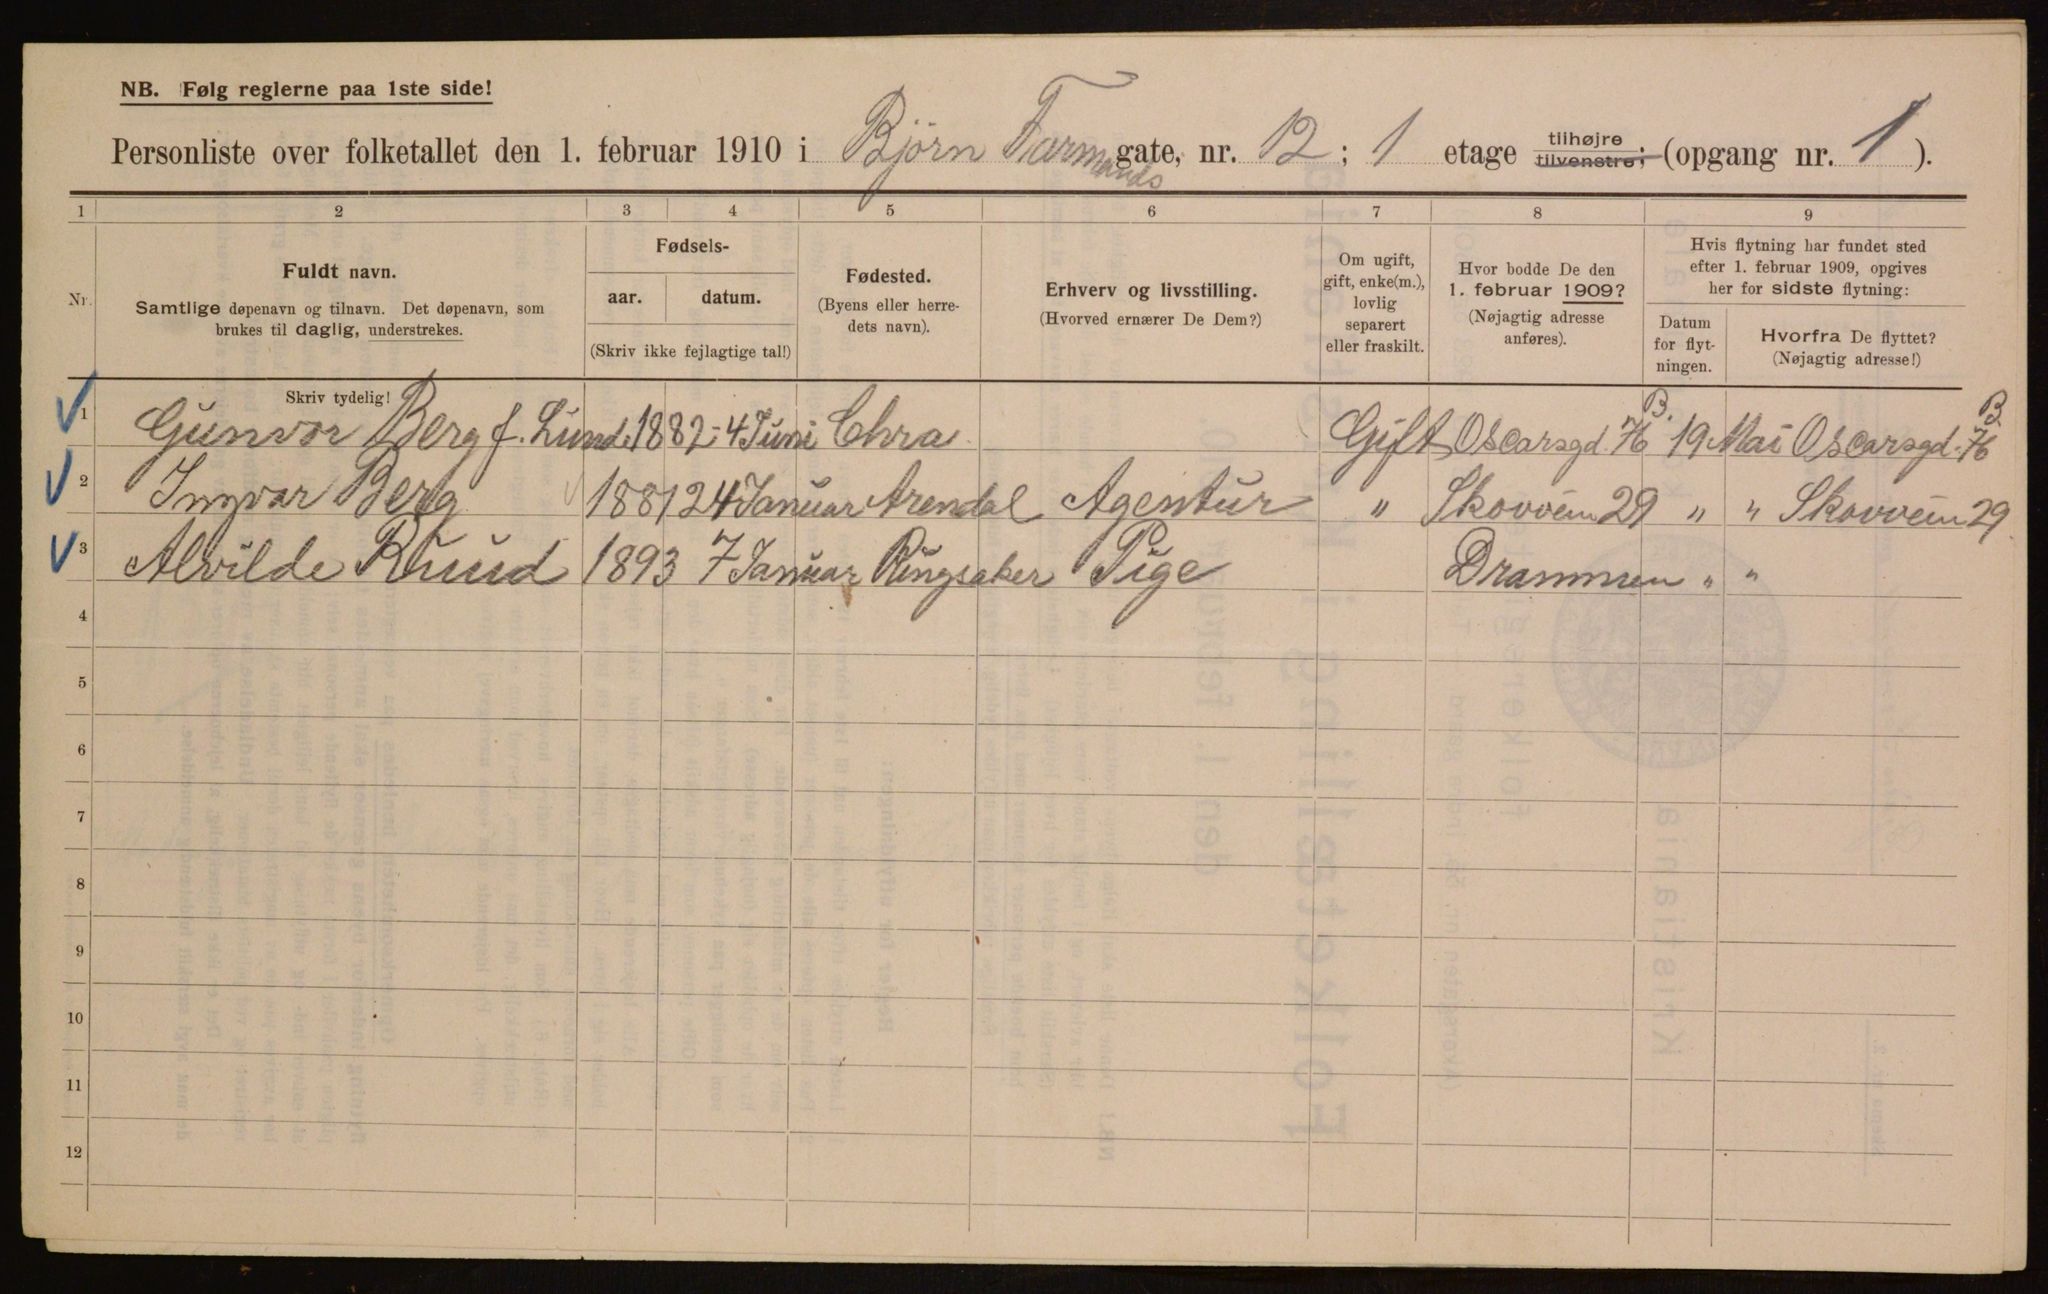 NB. Følg reglerne paa 1ste side!
Personliste over folketallet den 1. februar 1910 i Bjørn Farmands gate, nr. 12; 1 etage tilhøjre tilvenstre; (opgang nr. 1).
1 2 3 4 5 6 7 8 9
Nr.
Fuldt navn.
Samtlige døpenavn og tilnavn. Det døpenavn, som
brukes til daglig, understrekes.
Fødsels-
aar. datum.
(Skriv ikke fejlagtige tal!)
Fødested.
(Byens eller herre-
dets navn).
Erhverv og livsstilling.
(Hvorved ernærer De Dem?)
Om ugift,
gift, enke(m.),
lovlig
separert
eller fraskilt.
Hvor bodde De den
1. februar 1909?
(Nøjagtig adresse
anføres).
Hvis flytning har fundet sted
efter 1. februar 1909, opgives
her for sidste flytning:
Datum
for flyt-
ningen.
Hvorfra De flyttet?
(Nøjagtig adresse!)
Skriv tydelig!
1 Gunvor Berg f. Lund. 1882 - 4 Juni Chra. Gift Oscarsgd. 76 B. 19 Mai Oscarsgd. 76 B.
2 Ingvar Berg 1881 24 Januar Arendal Agentur " Skovvein 29 " " Skovvein 29
3 Alvilde Ruud 1893 7 Januar Ringsaker Pige Drammen " "
4
5
6
7
8
9
10
11
12